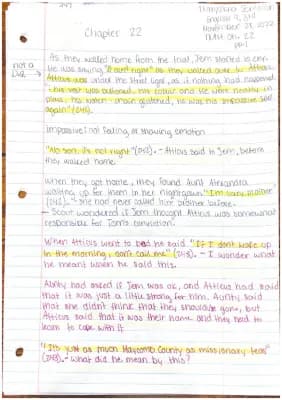 Chapter 22
English
22
not a
As they walked home from the trial, Jem started to cry.
He was saying "It ain't right" as they walked over to Atticus.
Atticus was under the street light, as if nothing had happened
his vest was buttoned, his collar and tie were neatly in
place, his watch-chain glistened, he was his impassive self
again"
Impassive: not feeling or showing emotion
"No son, it's not right" - Atticus said to Jem, before
they walked home
When they got home, they found Aunt Alexandra
waiting up for them in her nightgown. "I'm sorry, brother"
- she had never called him brother before.
- Scout wondered if Jem thought Atticus was somewhat
responsible for Tom's conviction.
When Atticus went to bed he said "If I don't wake up
in the morning, don't call me" - I wonder what
he meant when he said this.
Aunty had asked if Jem was ok, and Atticus had said
that it was just a little strong for him. Aunty said
that she didn't think that they should've gone, but
Atticus said that it was their home and they had to
learn to cope with it
"It's just as much Maycomb County as missionary teas"
- what did he mean by this?